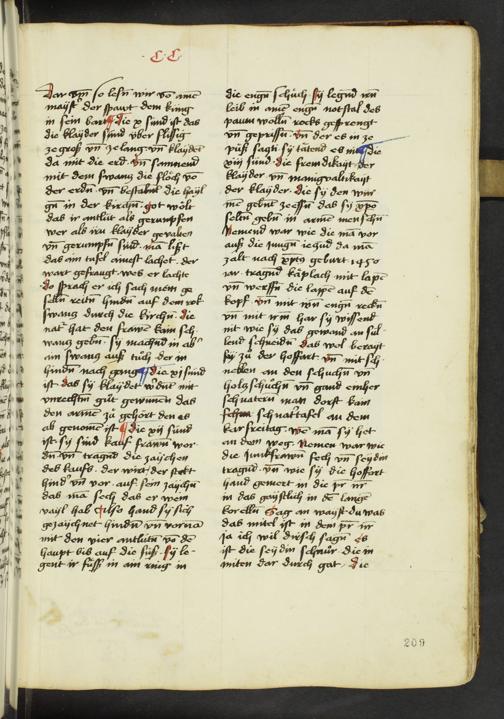 CC
Dar vm so lesen wir vo aine
mayst der spart dem king
in sein bart die x sünd ist das
die klayder sünd über flissig
ze groß vn ze lang vn klaydet
da mit die erd vn samnend
mit dem swanz die flich vo
der erdn vn bestabent die hayl
gn in der kirchn got wölt
das ir antlüt als gerumpfen
wer als irü klayder gevalten
vn gerumpfn sind ma list
das am tüfel ainest lachet der
wart gefraugt wes er lachte
do sprach er ich sach mein ge
sellen reitn hindn auf dem rok
swanz durch die kirchn die
nat hat den frawen kain sch
wanz gebn sy machend in ab
ain swanz auß tüch der in
hinden nach gang die xi sünd
ist das sy klaydet werdent mit
vnrechtm güt gewunen das
den arme zü gehört den es
ab genomen ist die xii sünd
ist sy sind kauf frawen wor
den vn tragend die zaychen
des kaufs der wirt der stekt
hind vn vor auf sein zaychn
das ma sech das er wein
vayl hab also hand sy sich
gezaychnet hinden vn vorna
mit den vier antlütn vo de
haupt bis auf die füß sy le
gent ir füß in ain ring in
die engen schüch sy legend irn
leib in aine engn notstal des
paum wolln rocks gesprengt
vn geprißn vn der es in ze
püß sagti sy tätend es nit die
xiii sünd die fremdikayt der
klayder vn manigualtikayt
der klayder die sy den wir
me gebent zeessn das sy xpo
selten gebn in arme menschn
Nemend war wie die ma vor
auß die jungn iezud da ma
zalt nach xpus geburt 1450
jar tragend käplach mit lapen
vn werfen die lappen auf de
kopf vn mit irn engn röckn
vn mit irm har sy wissend
nit wie sy das gewand an sül
lend schneidn das wol berayt
sy zü der hoffart vn mit sch
neblen an den schuchn vn
holzschuchn vn gand einher
schnatern man dorft kain
schnattafel an dem
karfreitag wen ma sy het
an dem weg Nemen war wie
die junkfrawen sech vn seyden
tragend vn wie sy die hoffart
hand gemert in die pr nr
in das gaystlich in de lange
korellen Sag an wayst du was
das mitel ist in dem pr nr
ja ich wil dirsch sagn es
ist die seydin schnur die in
miten dar durch gat die
209